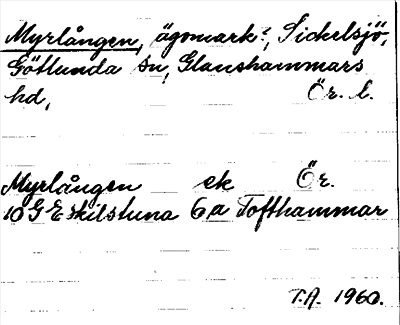 Myrlången, ägomark?, Sickelsjö,
Götlunda sn, Glanshammars
hd, Ör. l.
Myrlången ek Ör.
10 G Eskilstuna 6 a Tofthammar
T.A. 1960.